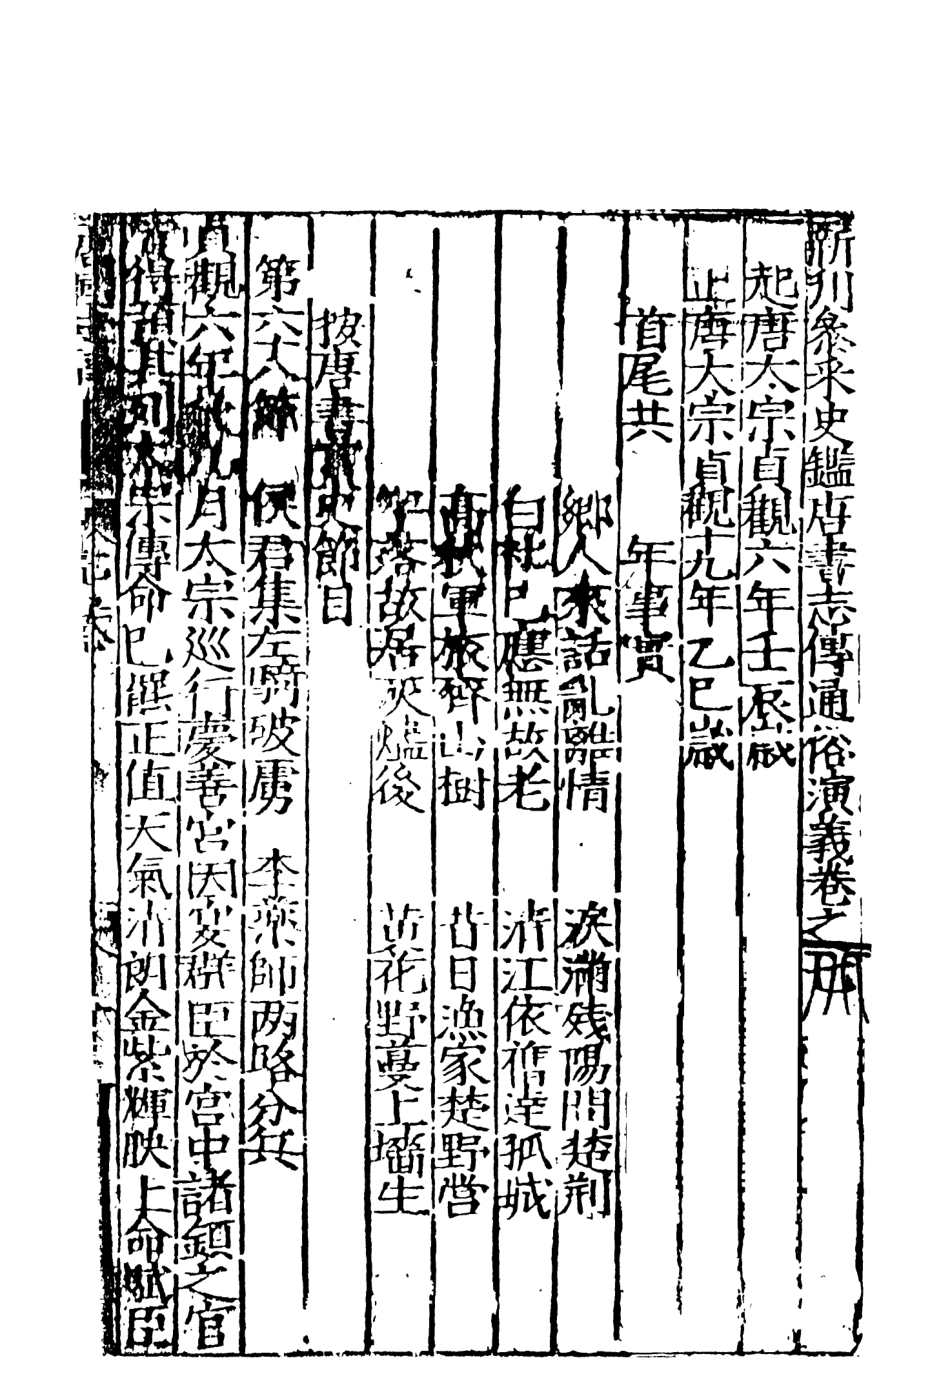 新刊參采史鑑唐書志傳通俗演義卷之
起唐太宗貞觀六年壬辰歲
止唐太宗貞觀十九年乙巳歲
首尾共 年事實
鄉人來話亂離情 淚滴殘陽問楚荆
白社已應無故老 清江依舊遶孤城
高秋軍旅齊山樹 昔日漁家楚野營
牢落故居灰燼後 黃花野蔓上墻生
按唐書實史節目
第六十八節 侯君集左騎破虜 李藥師兩路分兵
貞觀六年秋九月太宗巡行慶善宮因宴群臣於宮中諸鎮之官
皆得預其列太宗傳命已饌正值天氣清朗金紫輝映上命賦臣